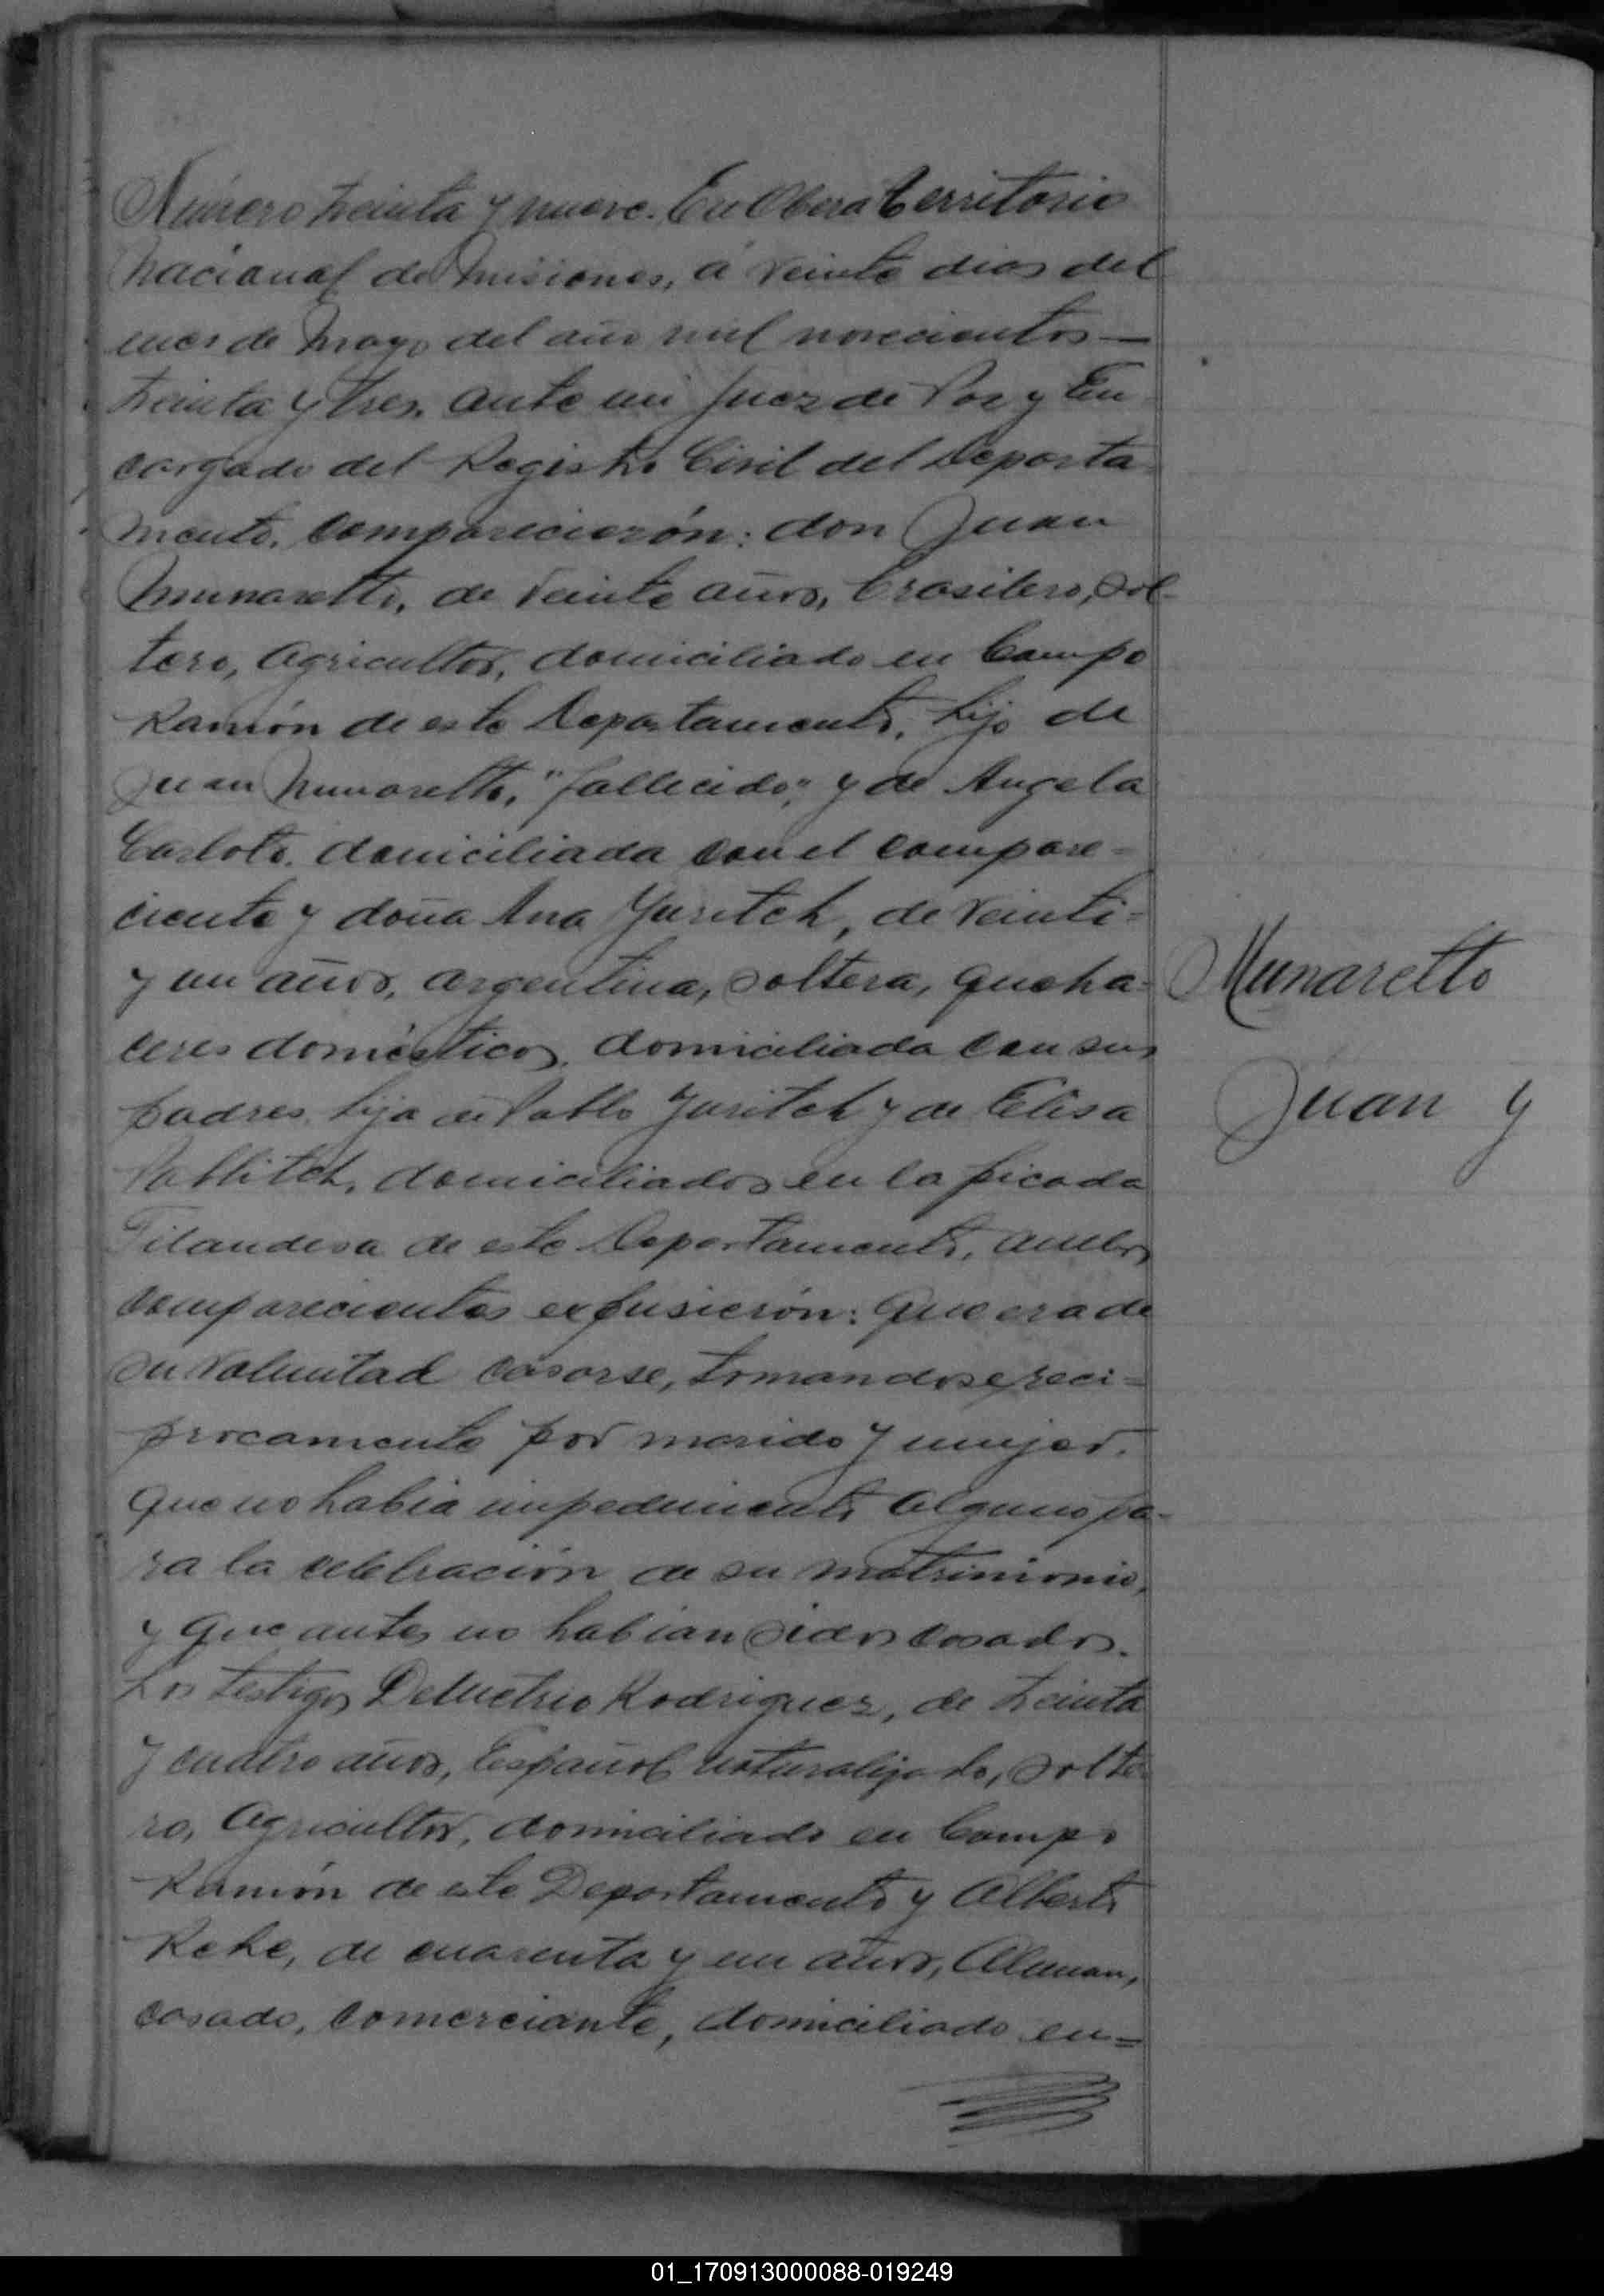 Número treinta y nueve. En Obera Territorio
Nacional de Misiones, á veinte dias del
mes de Mayo del año mil novecientos —
treinta y tres, ante mi Juez de Paz y En
cargado del Registro Civil del Departa-
mento, comparecierón: don Juan
Munaretto, de veinte años, brasilero, sol-
tero, agricultor, domiciliado en Campo
Ramón de este Departamento, hijo de
Juan Munaretto, "fallecido", y de Angela
Carloto, domiciliada con el compare=
ciente y doña Ana Yuritch, de veinti=
y un años, argentina, soltera, queha=
ceres domésticos, domiciliada con sus
padres, hija de Pablo Yuritch y de Elisa
Pablitch, domiciliados en la picada
Filandesa de este Departamento, ambos
comparecientes expusierón: Que era de
su voluntad casarse, tomandose reci=
procamente por marido y mujer.
Que no habia impedimento alguno pa-
ra la celebración de su matrimonio,
y que antes no habian sidos casados.
Los testigos Demetrio Rodriguez, de treinta
y cuatro años, Español naturalizado, solte-
ro, agricultor, domiciliado en Campo
Ramón de este Departamento y Alberto
Reke, de cuarenta y un años, Aleman,
casado, comerciante, domiciliado en=
Munaretto
Juan y
01_170913000088-019249